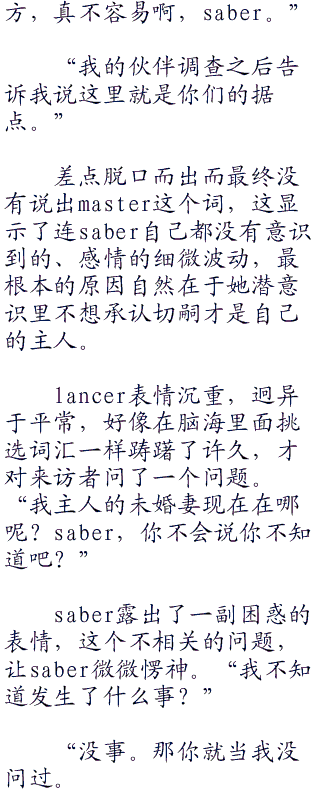 方，真不容易啊，saber。”
“我的伙伴调查之后告
诉我说这里就是你们的据
点。”
差点脱口而出而最终没
有说出master这个词，这显
示了连saber自己都没有意识
到的、感情的细微波动，最
根本的原因自然在于她潜意
识里不想承认切嗣才是自己
的主人。
lancer表情沉重，迥异
于平常，好像在脑海里面挑
选词汇一样踌躇了许久，才
对来访者问了一个问题。
“我主人的未婚妻现在在哪
呢？saber，你不会说你不知
道吧？”
saber露出了一副困惑的
表情，这个不相关的问题，
让saber微微愣神。“我不知
道发生了什么事？”
“没事。那你就当我没
问过。